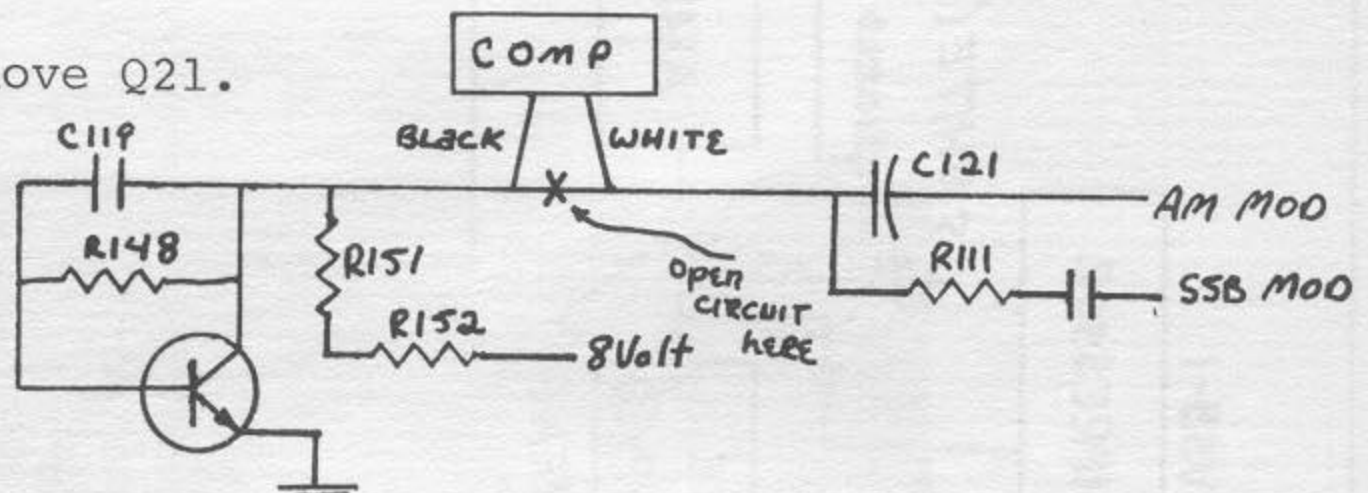 ove Q21.
COMP
BLACK
WHITE
C119
R148
R151
R152
8Volt
OPEN
CIRCUIT
HERE
C121
AM MOD
R111
SSB MOD